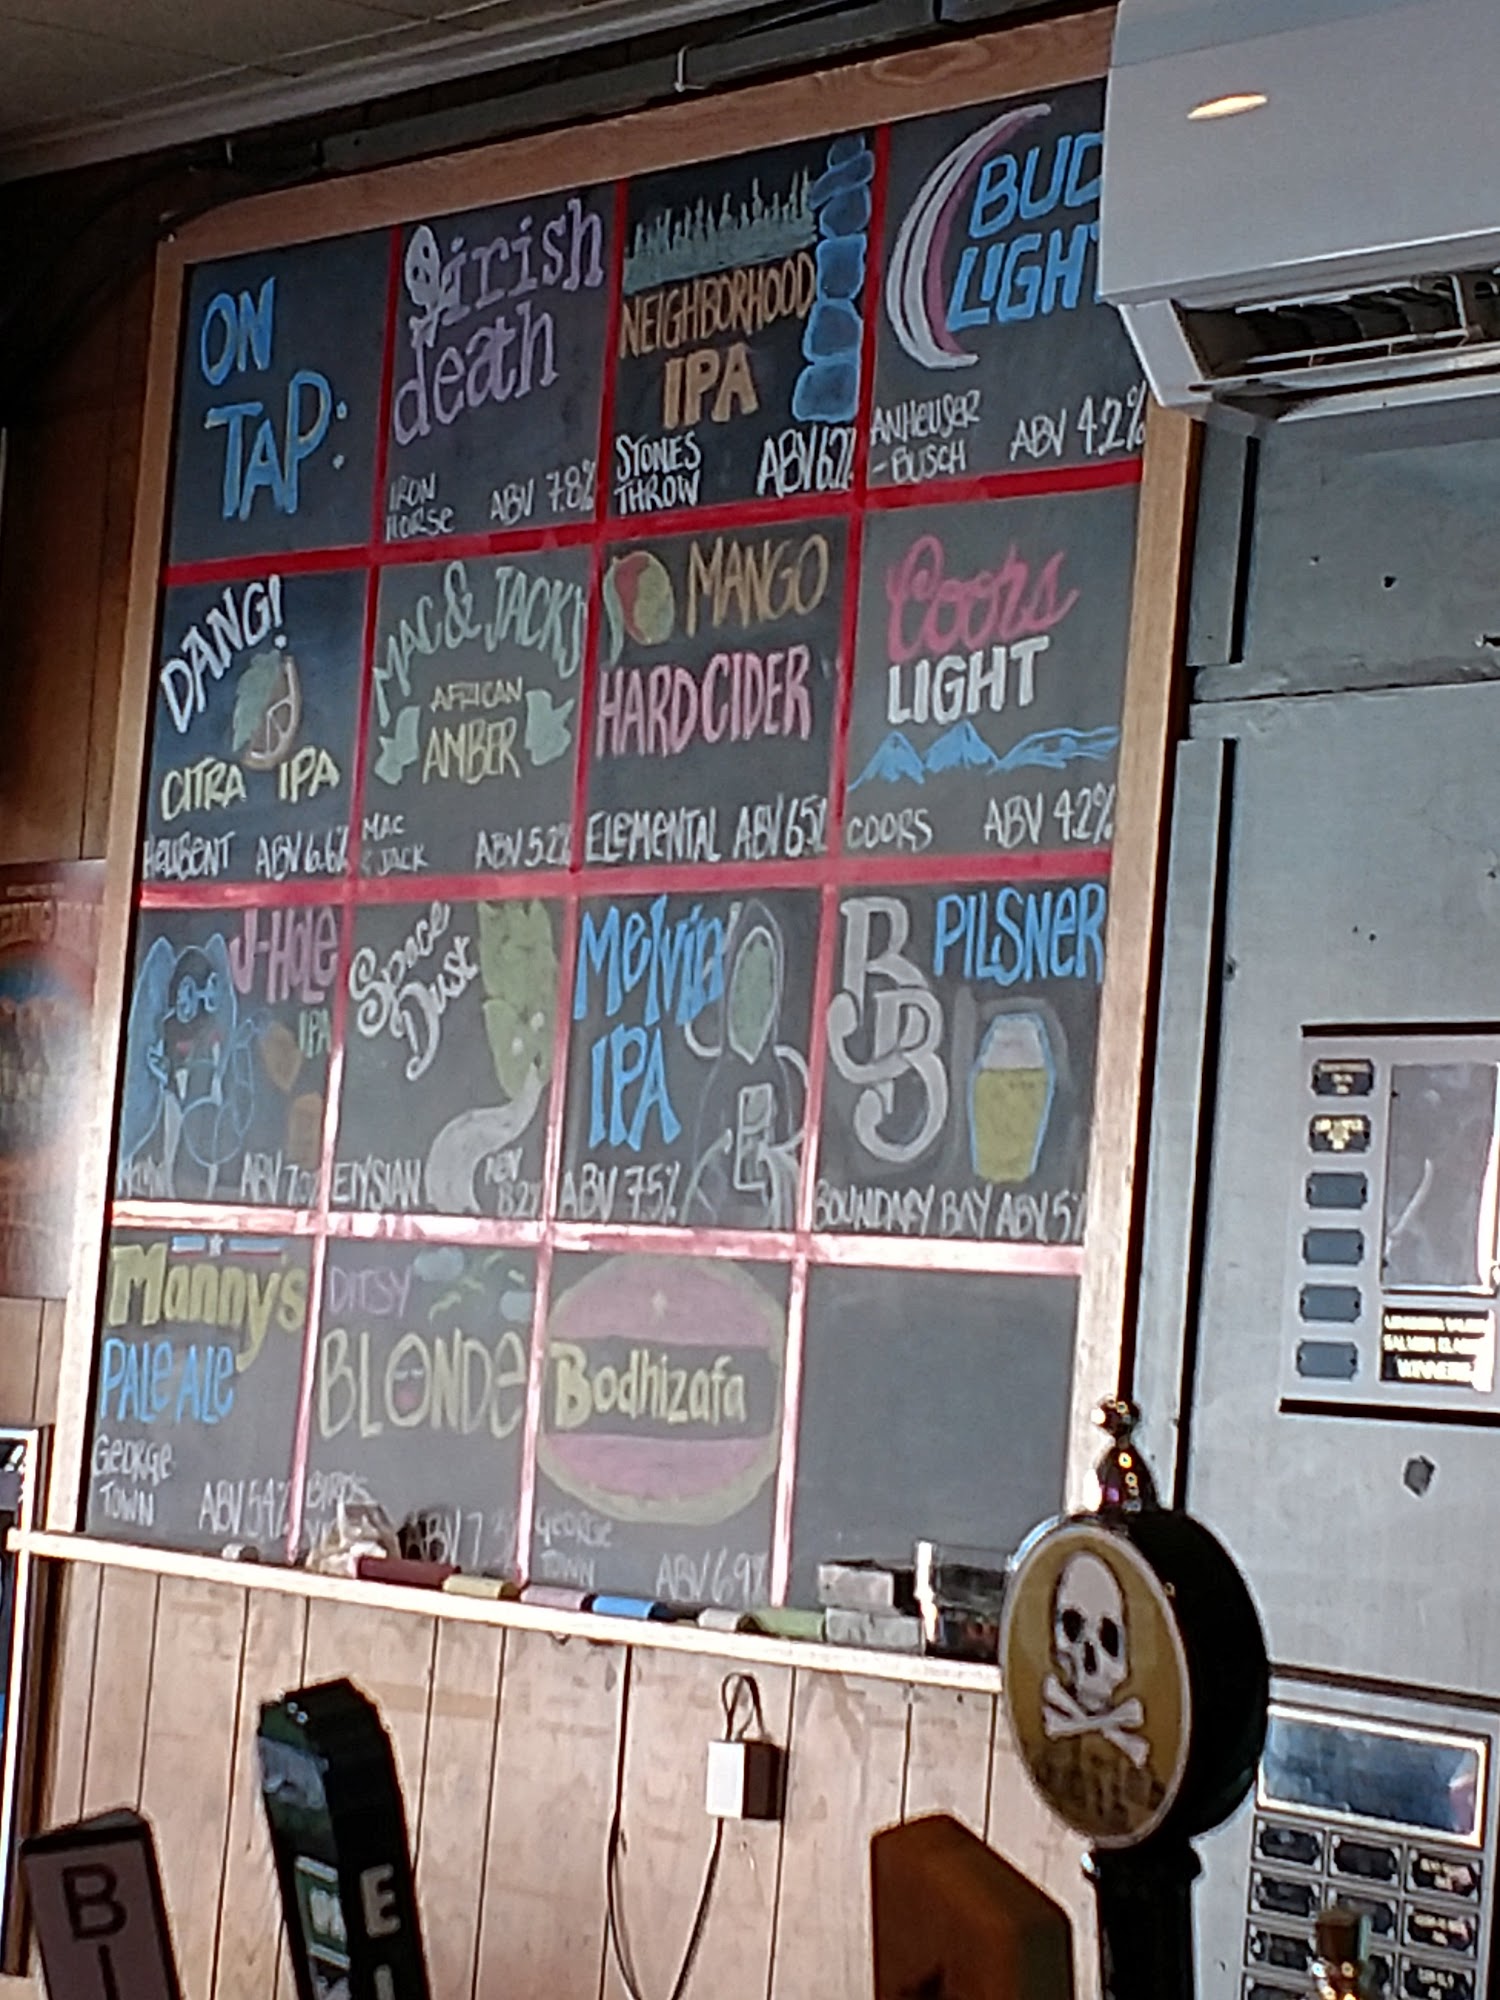 ON
TAP:
irish
death
IRON
HORSE
ABV 7.8%
NEIGHBORHOOD
IPA
STONES
THROW
ABV 6.2%
BUD
LIGHT
ANHEUSER
-BUSCH
ABV 4.2%
DANG!
CITRA IPA
ABV 6.6%
MAC & JACK'S
AFRICAN
AMBER
MAC
& JACK
ABV 5.2%
MANGO
HARD CIDER
ELEMENTAL ABV 6.5%
Coors
LIGHT
COORS ABV 4.2%
J-Hole
IPA
ABV
Space
Dust
ELYSIAN
ABV
8.2%
Melvin
IPA
ABV 7.5%
BB
PILSNER
BOUNDARY BAY ABV 5%
Manny's
PALE ALE
GEORGE
TOWN
ABV 5.4%
DITSY
BLONDE
BIRDS
ABV 7.3
Bodhizafa
GEORGE
TOWN
ABV 6.9%
B
I
E